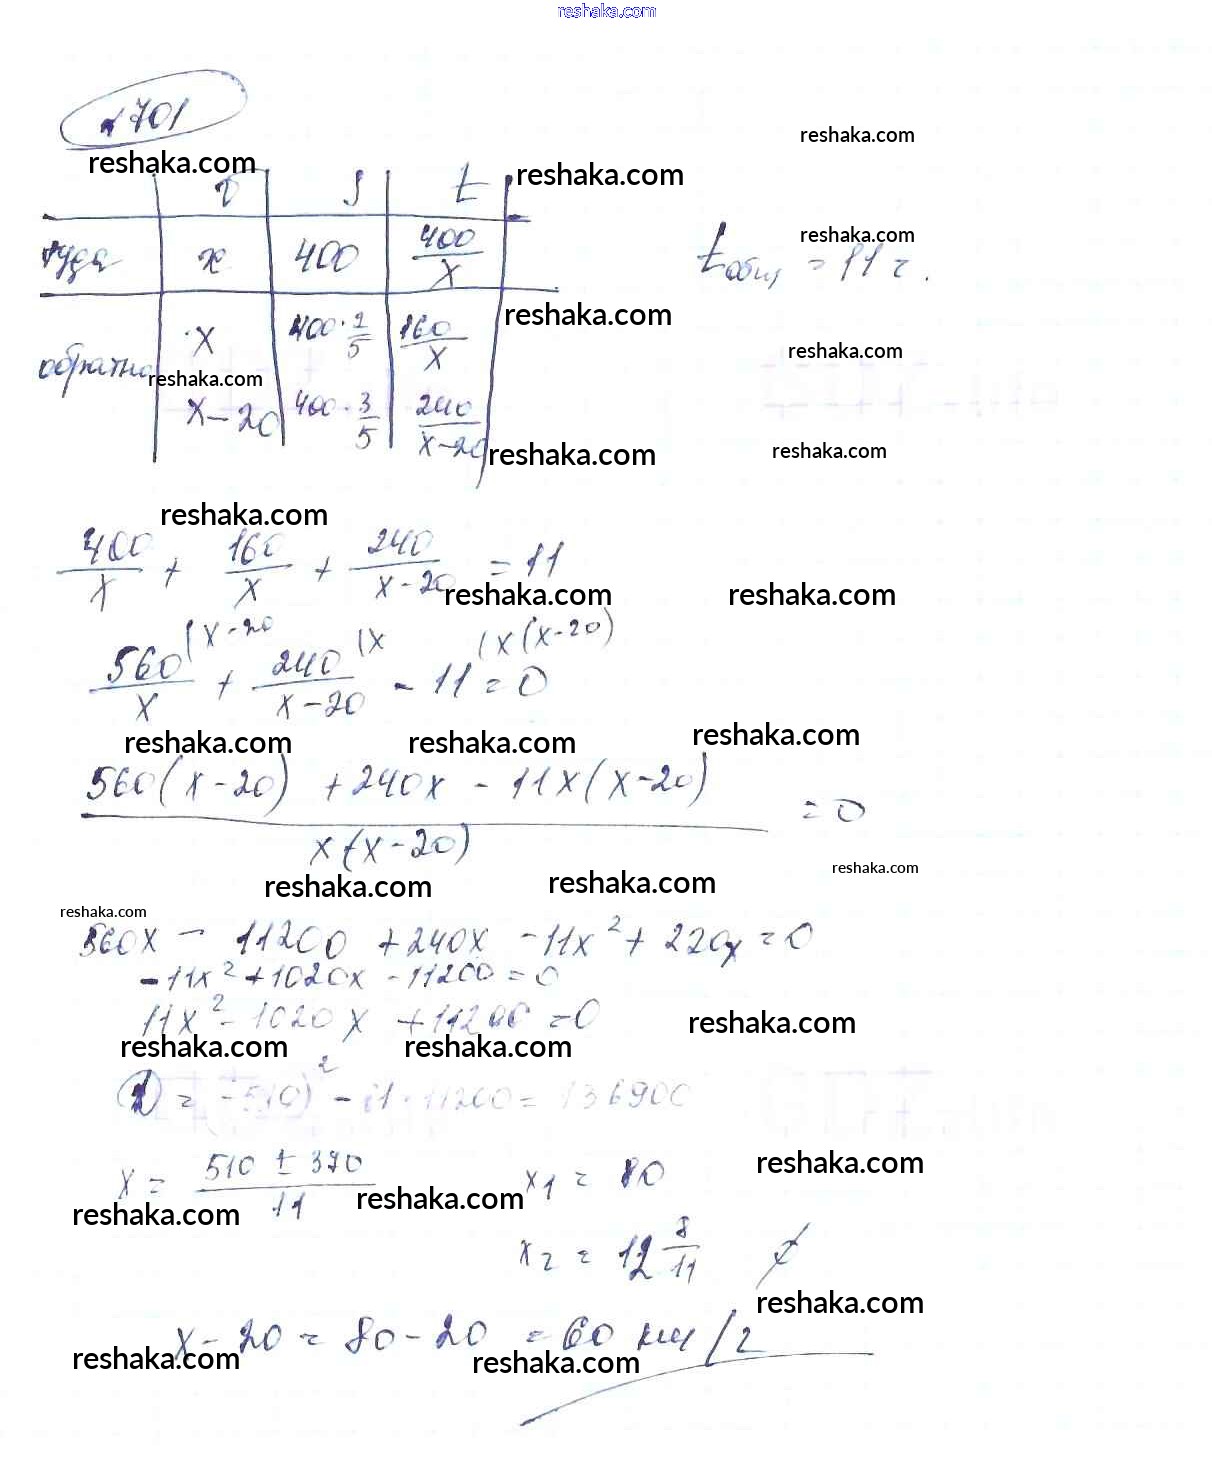 reshaka.com
№701
reshaka.com
reshaka.com
v S t
reshaka.com
туда x 400 400/x
reshaka.com
tобщ = 11 ч.
reshaka.com
обратно x 400 · 2/5 160/x
reshaka.com
reshaka.com
x - 20 400 · 3/5 240/(x-20)
reshaka.com
reshaka.com
reshaka.com
400/x + 160/x + 240/(x-20) = 11
reshaka.com
reshaka.com
560/x (x-20 + 240/(x-20) (x - 11 (x(x-20) = 0
reshaka.com
reshaka.com
reshaka.com
560(x-20) + 240x - 11x(x-20)
= 0
x(x-20)
reshaka.com
reshaka.com
reshaka.com
reshaka.com
560x - 11200 + 240x - 11x² + 220x = 0
-11x² + 1020x - 11200 = 0
11x² - 1020x + 11200 = 0
reshaka.com
reshaka.com
reshaka.com
D = (-510)² - 11 · 11200 = 136900
x = (510 ± 370)/11
x1 = 80
reshaka.com
reshaka.com
reshaka.com
x2 = 12 8/11
reshaka.com
x - 20 = 80 - 20 = 60 км/ч
reshaka.com
reshaka.com